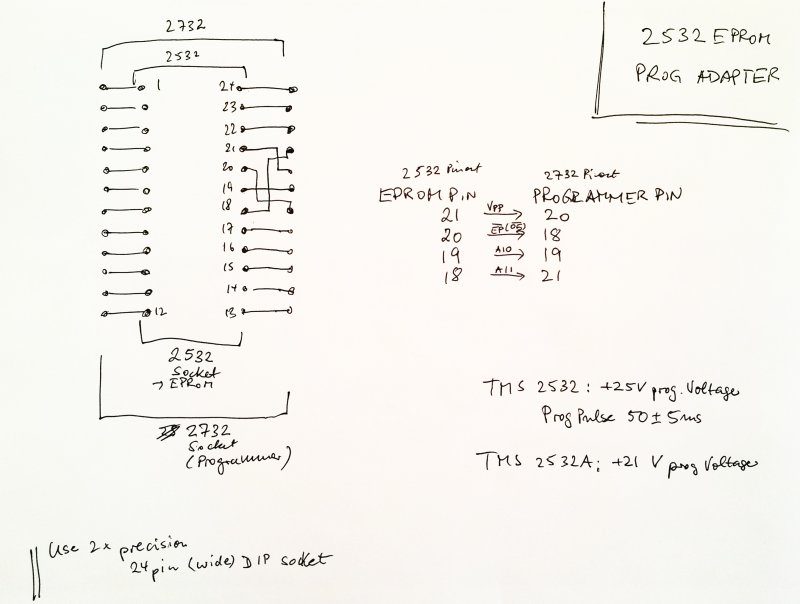 2732
2532
2532 EPROM
PROG ADAPTER
1 24
23
22
21
20
19
18
17
16
15
14
12 13
2532
Socket
→ EPROM
2732
Socket
(Programmer)
2532 Pinout 2732 Pinout
EPROM PIN PROGRAMMER PIN
21 VPP → 20
20 EP(OE) → 18
19 A10 → 19
18 A11 → 21
TMS 2532: +25V prog. Voltage
Prog Pulse 50 ± 5ms
TMS 2532A: +21 V prog Voltage
Use 2x precision
24 pin (wide) DIP socket